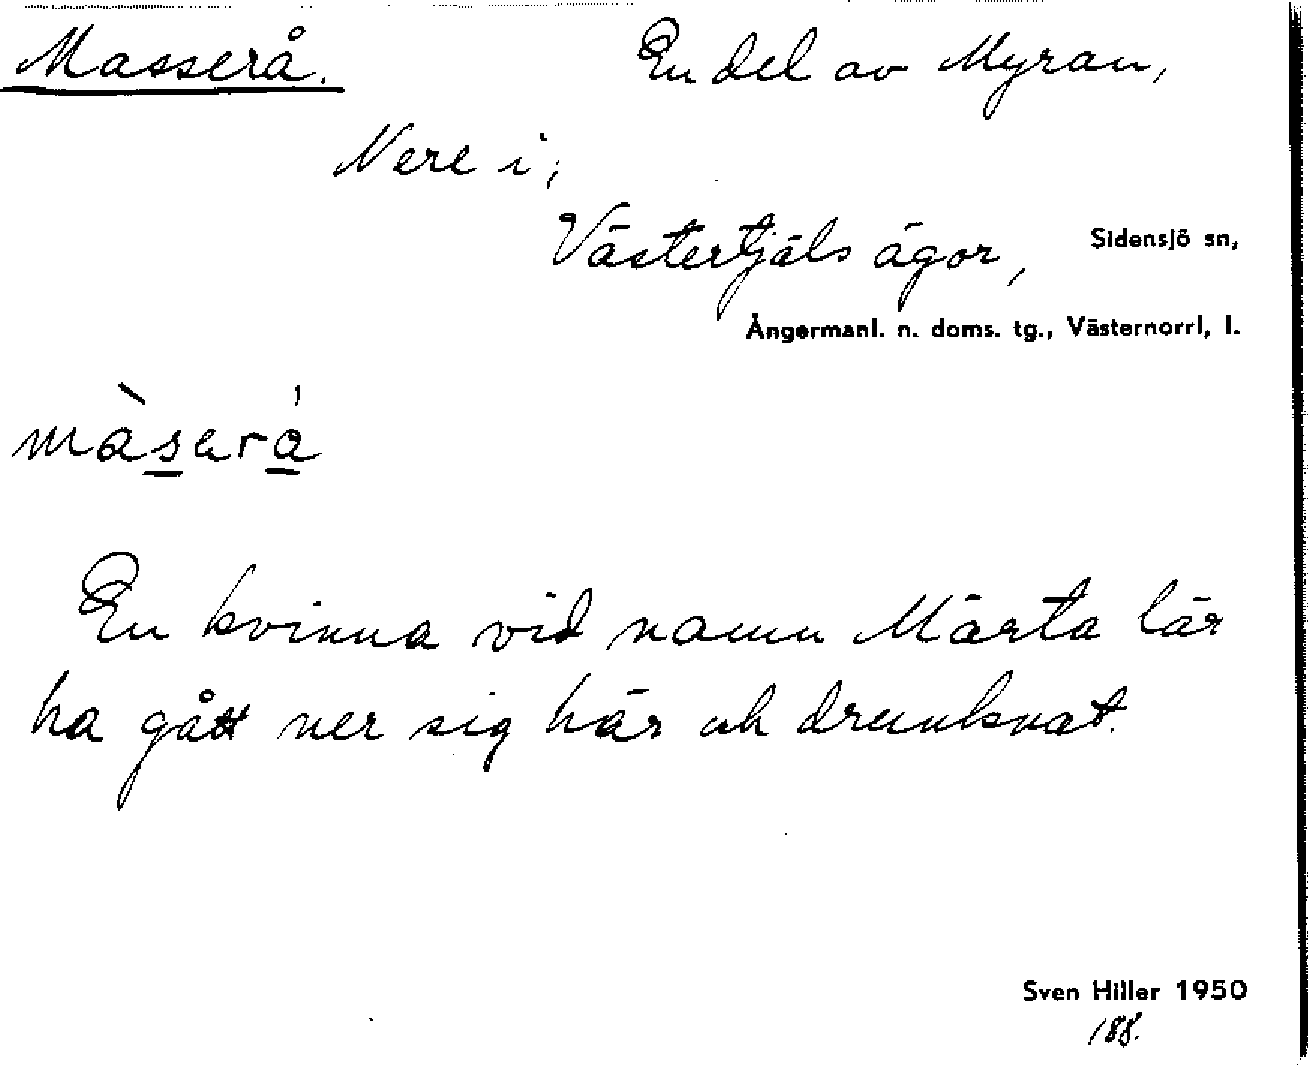 Masserå. En del av Myran,
Nere i,
Västertjäls ägor, Sidensjö sn,
Ångermanl. n. doms. tg., Västernorrl. l.
màserá
En kvinna vid namn Märta lär
ha gått ner sig här och drunknat.
Sven Hiller 1950
188.